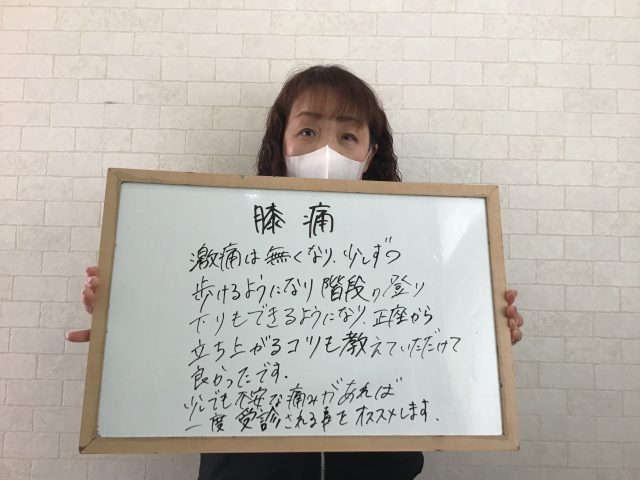 膝痛
激痛は無くなり、少しずつ
歩けるようになり階段の登り
下りもできるようになり、正座から
立ち上がるコツも教えていただけて
良かったです.
少しでも不安な痛みがあれば
一度受診される事をオススメします.